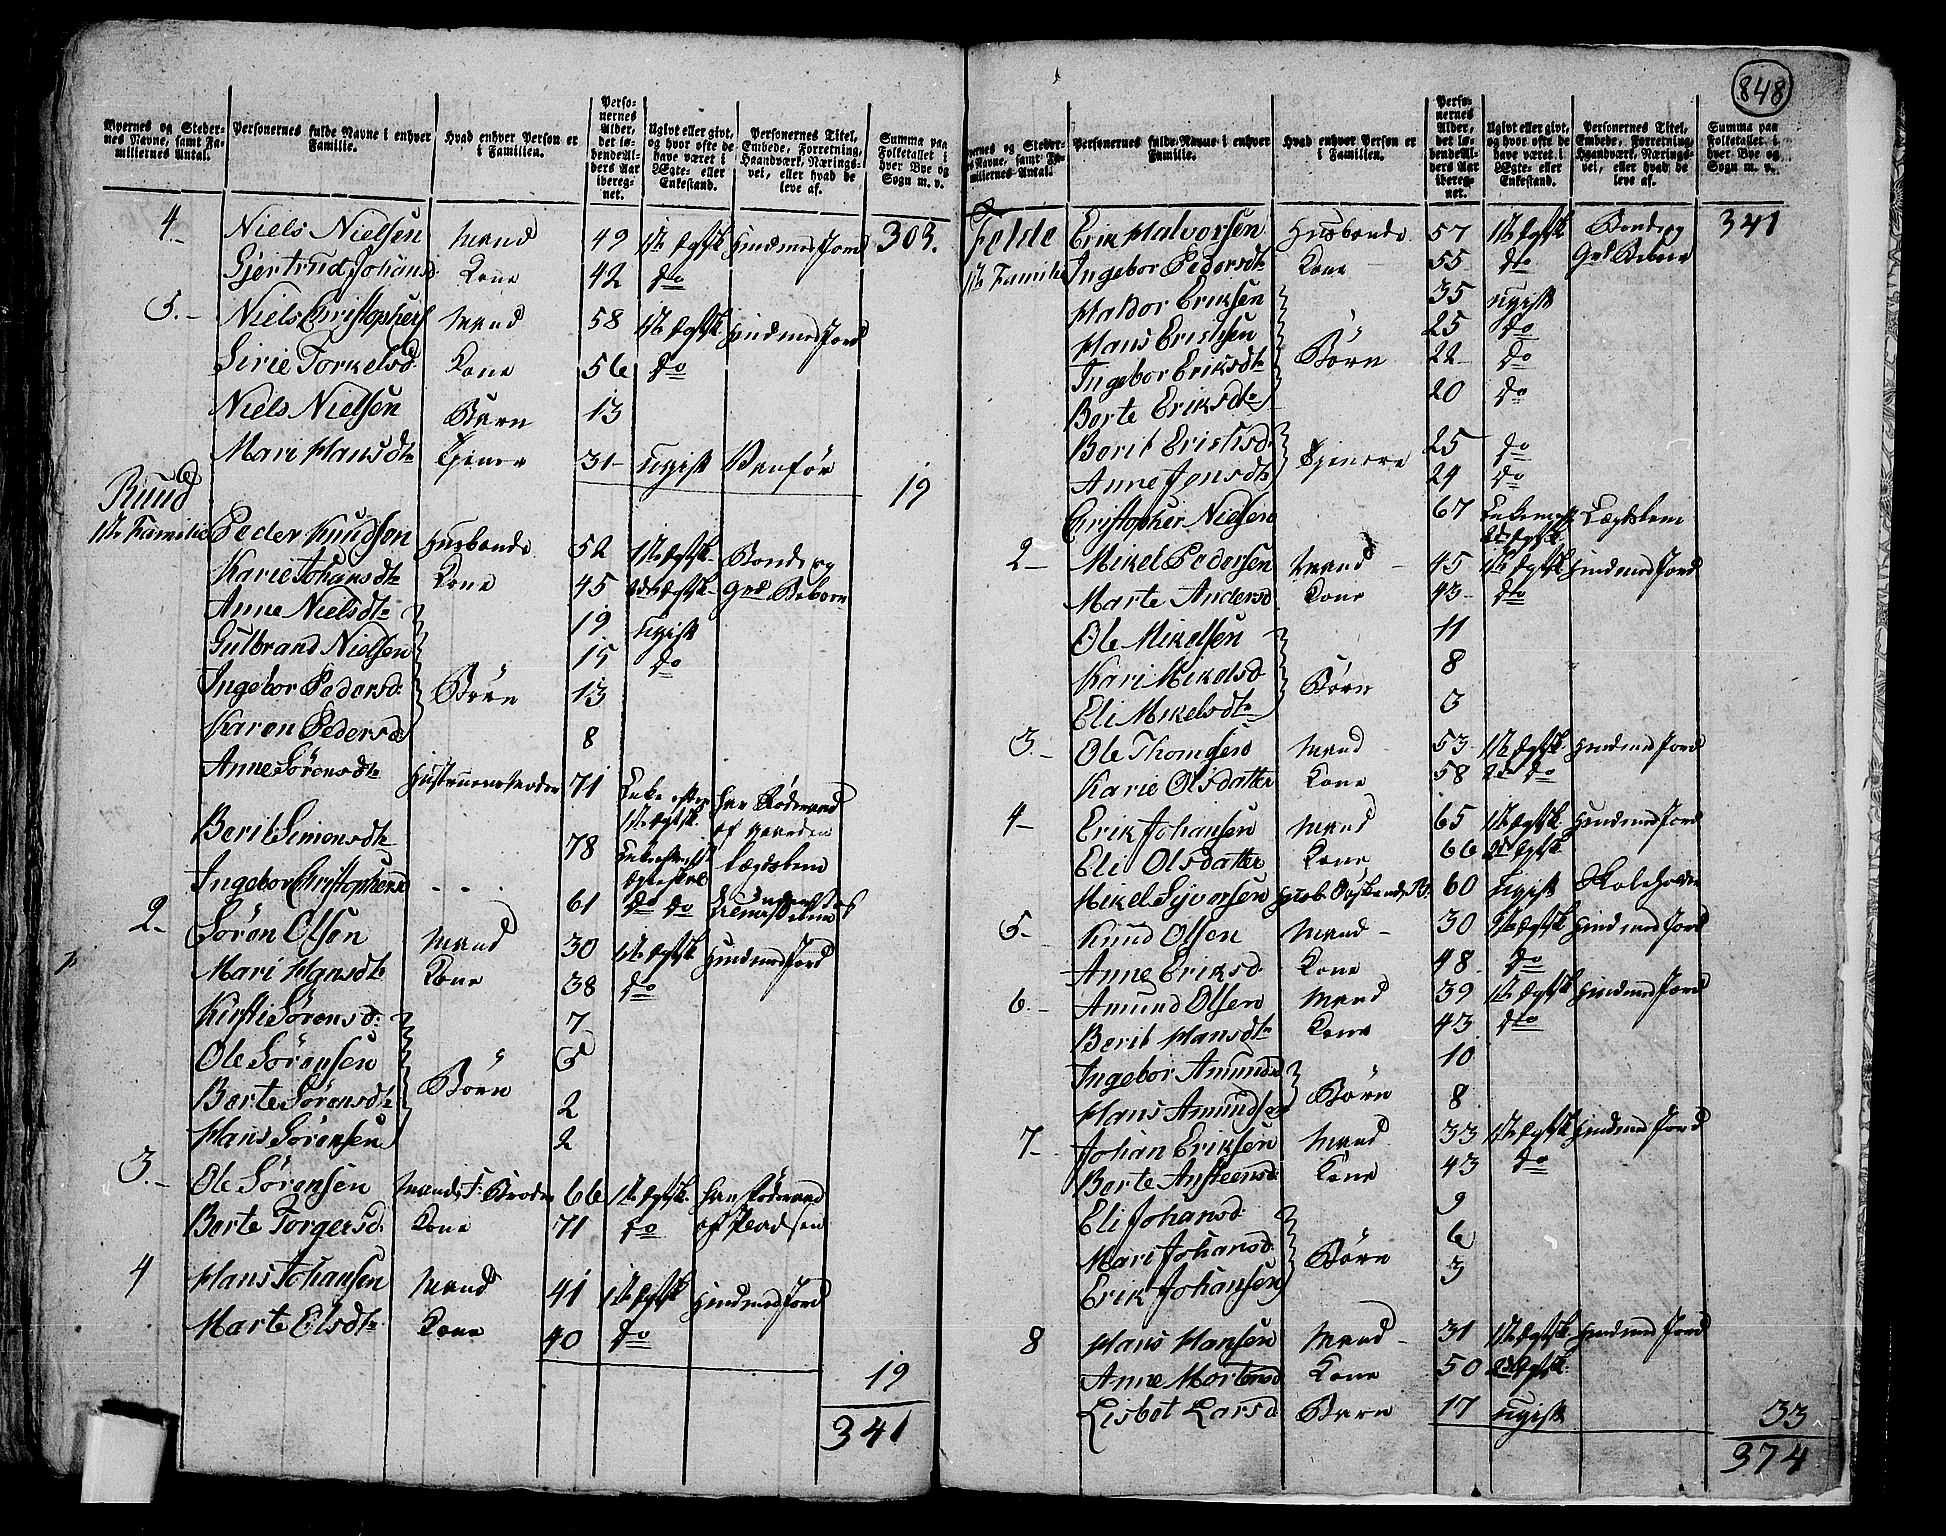 848
Byernes og Steder-
nes Navne, samt Fa-
miliernes Antal.
Personernes fulde Navne i enhver
Familie.
Hvad enhver Person er
i Familien.
Perso-
nernes
Alder,
det lø-
bende Al-
ders Aar
ibereg-
net.
Ugivt eller givt,
og hvor ofte de
have været i
Ægte- eller
Enkestand.
Personernes Titel,
Embede, Forretning,
Haandværk, Nærings-
vei, eller hvad de
leve af.
Summa paa
Folketallet i
hver Bye og
Sogn m. v.
4.- Niels Nielsen Mand 49 1ste Ægtsk Huusmed Jord 303.
Gjertrud Johansd Kone 42 do
5.- Niels Christophers Mand 58 1ste Ægtsk Huusmed Jord
Sirie Torkelsd. Kone 56 do
Niels Nielsen Barn 13
Mari Hansdtr Tjener 31 Ugift Vanfør 19
Ruud
1ste Familie Peder Knudsen Husbonde 52 1ste Ægtsk. Bonde og
Karie Johansdtr Kone 45 2det Ægtsk. Grd Beboer
Anne Nielsdtr 19 Ugift
Gulbrand Nielsen 15 do
Ingebor Pedersd. Børn 13
Karen Pedersd 8
Anne Sørensdtr Hustruens Moder 71 Enke efter 1ste Ægtsk. har Føderaad af Gaarden
Berit Simensdtr 78 Lægdslem
Ingebor Christophersd 61 do do
2- Søren Olsen Mand 30 1ste Ægtsk Huusmed Jord
Mari Hansdtr Kone 38 do
Kirsti Sørensd. 7
Ole Sørensen 5
Berte Sørensdtr Børn 2
Hans Sørensen 2
3.- Ole Sørensen Mands F. Broder 66 1ste Ægtsk. har Føderaad
Berte Torgersd. Kone 71 do af Pladsen
4 Hans Johansen Mand 41 1ste Ægtsk Huusmed Jord
Marte Olsdtr Kone 40 do
19
341
Byernes og Steder-
nes Navne, samt Fa-
miliernes Antal.
Personernes fulde Navne i enhver
Familie.
Hvad enhver Person er
i Familien.
Perso-
nernes
Alder,
det lø-
bende Al-
ders Aar
ibereg-
net.
Ugivt eller givt,
og hvor ofte de
have været i
Ægte- eller
Enkestand.
Personernes Titel,
Embede, Forretning,
Haandværk, Nærings-
vei, eller hvad de
leve af.
Summa paa
Folketallet i
hver Bye og
Sogn m. v.
Felde Erik Halvorsen Husbonde 57 1ste Ægtsk Bonde og 341
1ste Familie Ingebor Pedersdtr Kone 55 do Grd Beboer
Haldor Eriksen 35 Ugift
Hans Erichsen 25 do
Ingebor Eriksdtr Børn 22 do
Berte Eriksdtr 20 do
Berit Erichsd. 25 do
Anne Jensdtr Tjenere 24 do
Christopher Nielsen 67 Enkemand 2det Ægtsk. Lægdslem
2- Mikel Pedersen Mand 45 1ste Ægtsk Huusmed Jord
Marte Andersd Kone 43 do
Ole Mikelsen 11
Kari Mikelsd Børn 8
Eli Mikelsdtr 3
3.- Ole Thomsen Mand 53 1ste Ægtsk. Huusmed Jord
Karie Olsdatter Kone 58 2det do
4- Erik Johansen Mand 65 1ste Ægtsk. Huusmed Jord
Eli Olsdatter Kone 66 2det Ægtsk.
Mikel Syversen 60 Ugift Skoleholder
5.- Knud Olsen Mand 30 1ste Ægtsk Huusmed Jord
Anne Eriksd. Kone 48 do
6.- Amund Olsen Mand 39 1ste Ægtsk Huusmed Jord
Berit Hansdtr Kone 43 do
Ingebor Amundsd 10
Hans Amundsen Børn 8
7- Johan Eriksen Mand 33 1ste Ægtsk Huusmed Jord
Berte Ansteensd. Kone 43 do
Eli Johansd. 9
Mari Johansd. Børn 6
Erik Johansen 3
8 Hans Hansen Mand 31 1ste Ægtsk. Huusmed Jord
Anne Mortensd Kone 50 2det Ægtsk.
Lisbet Larsd Barn 17 Ugift 33
374